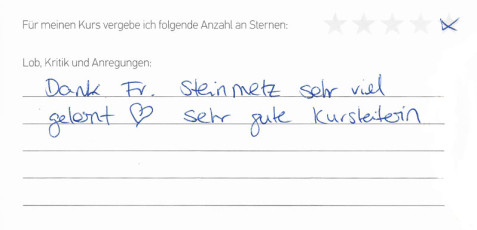 Für meinen Kurs vergebe ich folgende Anzahl an Sternen:
Lob, Kritik und Anregungen:
Dank Fr. Steinmetz sehr viel
gelernt ♡ sehr gute Kursleiterin